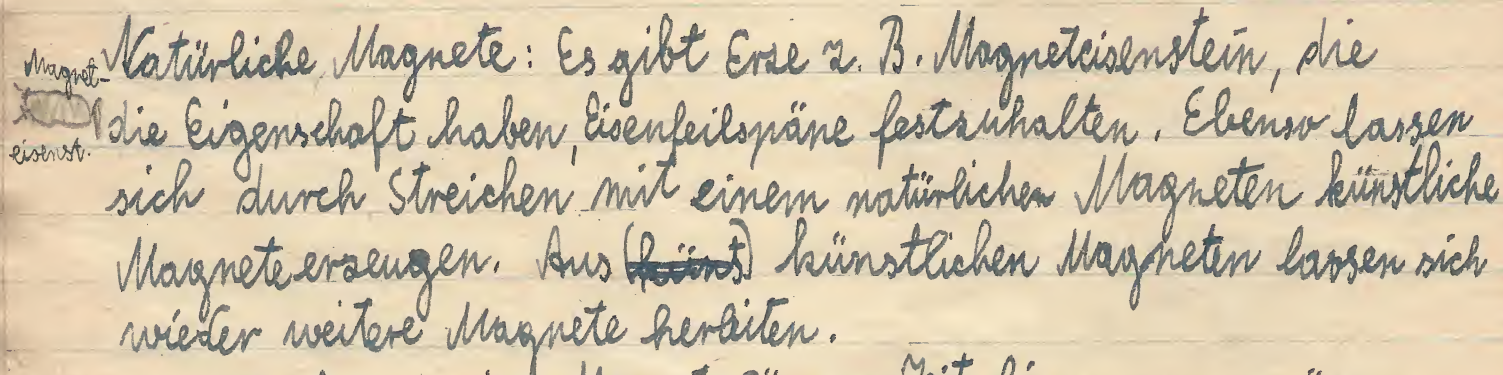 Natürliche Magnete: Es gibt Erze z. B. Magneteisenstein, die
Magnet-
die Eigenschaft haben, Eisenfeilspäne festzuhalten. Ebenso lassen
eisenst.
sich durch Streichen mit einem natürlichen Magneten künstliche
Magnete erzeugen. Aus (künst) künstlichen Magneten lassen sich
wieder weitere Magnete herleiten.